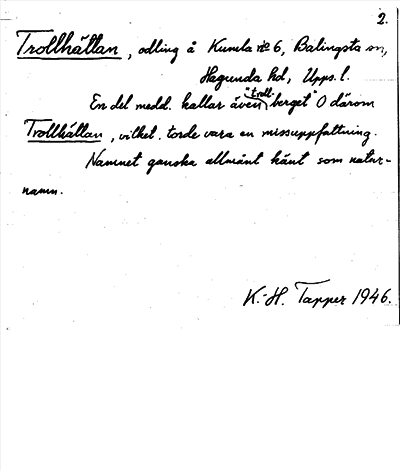 2.
Trollhällan, odling å Kumla No 6, Balingsta sn,
Hagunda hd, Upps. l.
En del medd. kallar även "troll-berget" O därom
Trollhällan, vilket torde vara en missuppfattning.
Namnet ganska allmänt känt som natur-
namn.
K.-H. Tapper 1946.